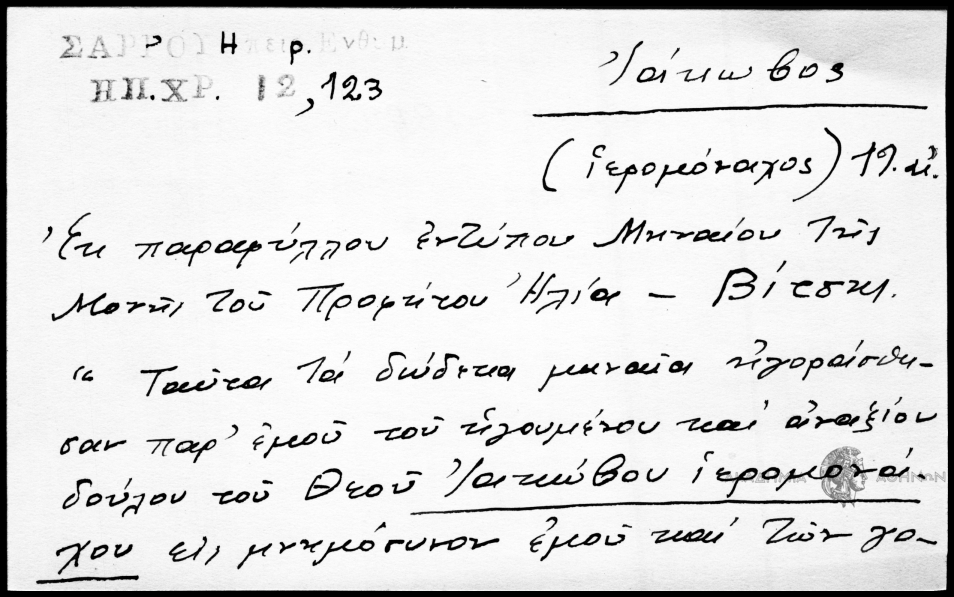 ΣΑΡΡΟΥ Ηπειρ. Ενθυμ
ΗΠ.ΧΡ. 12, 123
Ἰάκωβος
(ἱερομόναχος) 19. αἰ.
Ἐκ παραφύλλου ἐντύπου Μηναίου τῆς
Μονῆς τοῦ Προφήτου Ἠλία – Βίτσης.
“ Ταῦτα τά δώδεκα μηναῖα ἠγοράσθη-
σαν παρ’ ἐμοῦ τοῦ ἡγουμένου καί ἀναξίου
δούλου τοῦ Θεοῦ Ἰακώβου ἱερομονά-
χου εἰς μνημόσυνον ἐμοῦ καί τῶν γο-
ΑΚΑΔΗΜΙΑ ΑΘΗΝΩΝ